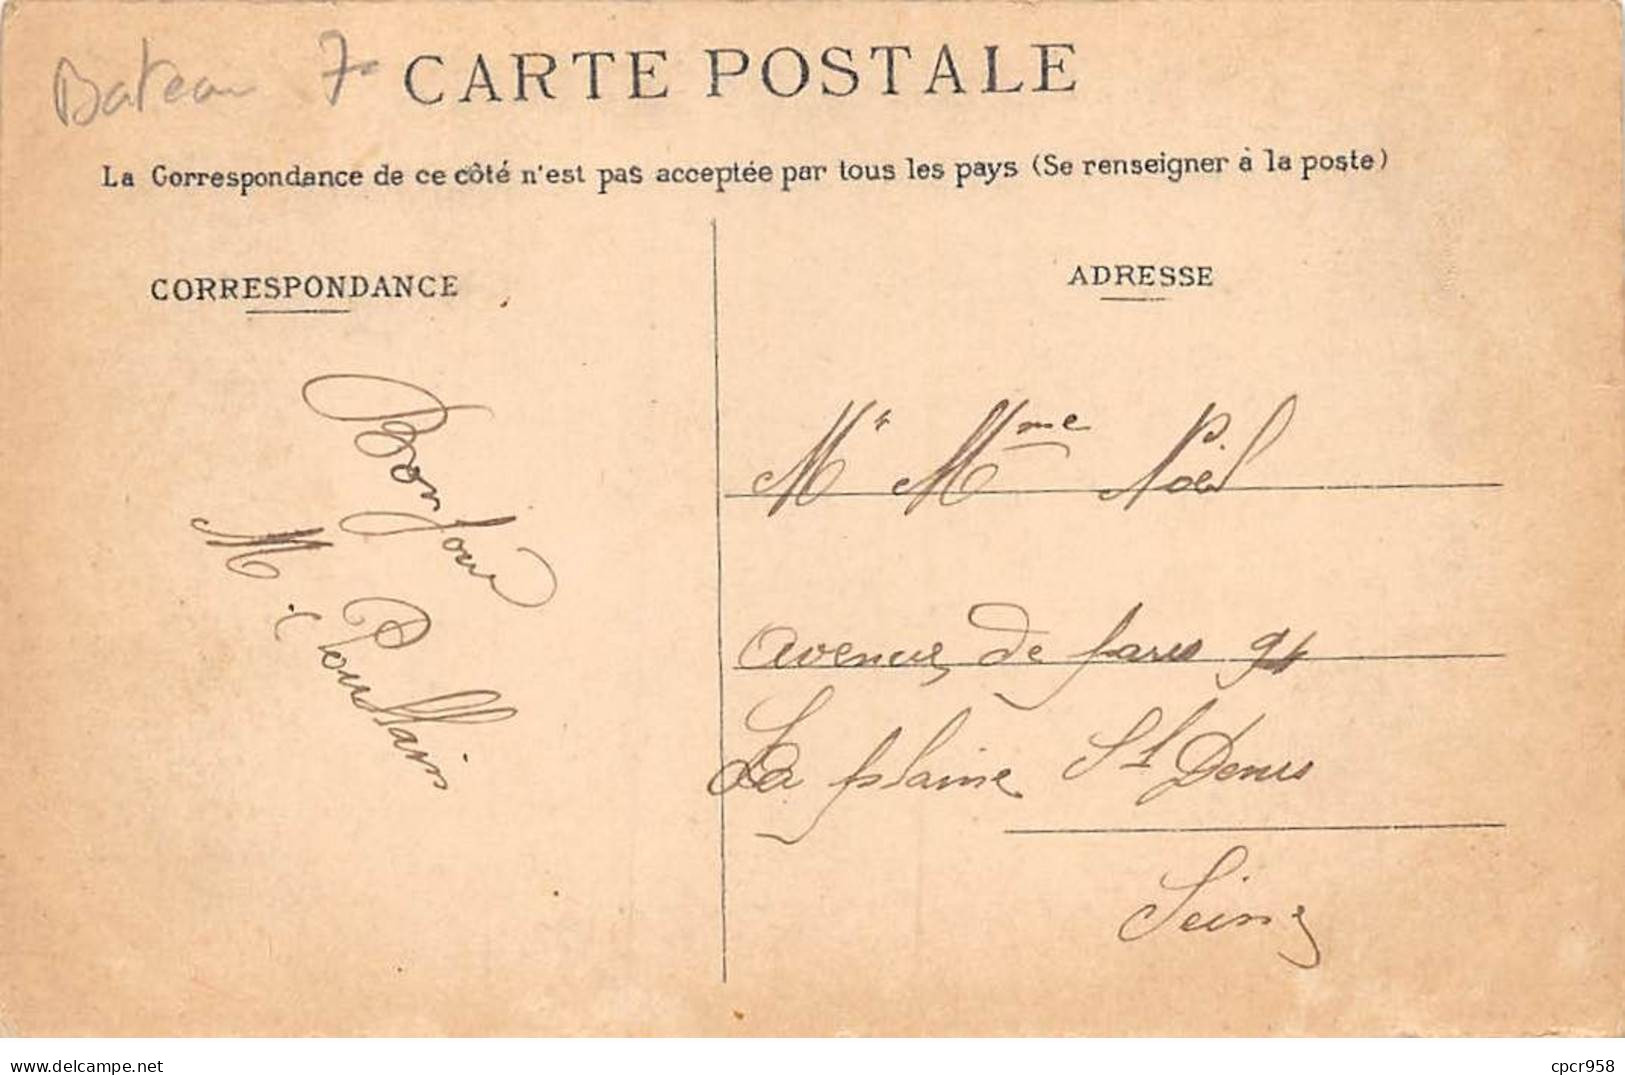 Bateau 7-
CARTE POSTALE
La Correspondance de ce côté n'est pas acceptée par tous les pays (Se renseigner à la poste)
CORRESPONDANCE
Bonjour
M. Poullain
ADRESSE
Mr Mme Noël
avenue de paris 94
La plaine St Denis
Seine
www.delcampe.net
cpcr958